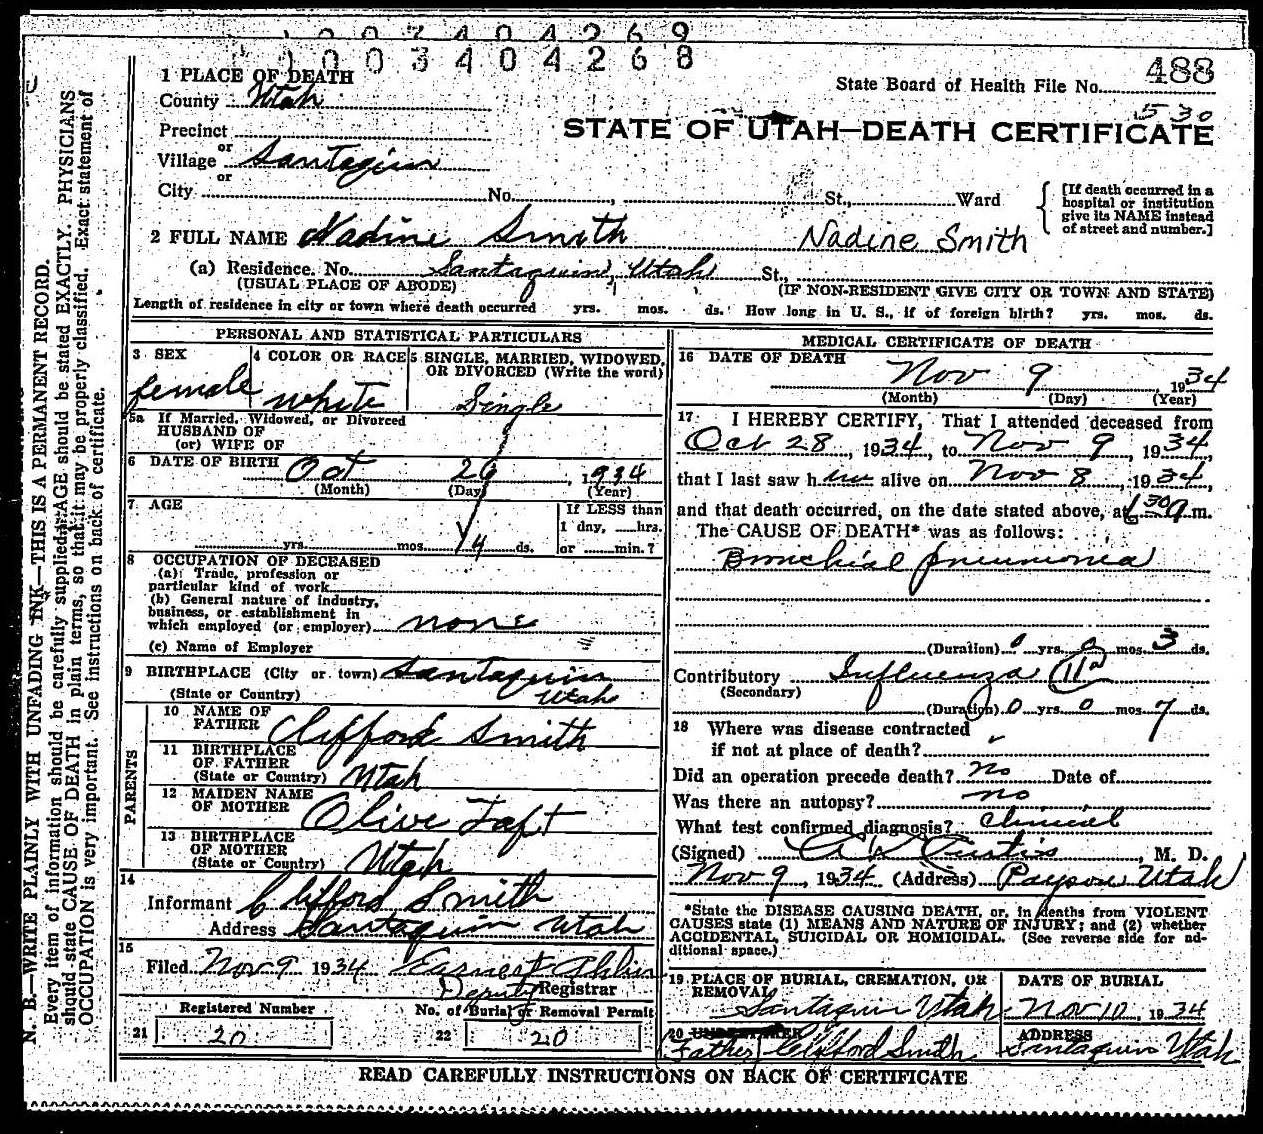 1003404269
1003404268
1 PLACE OF DEATH
State Board of Health File No. 488
County Utah
530
STATE OF UTAH—DEATH CERTIFICATE
Precinct
or
Village Santaquin
or
City No. , St., Ward
[If death occurred in a
hospital or institution
give its NAME instead
of street and number.]
2 FULL NAME Nadine Smith Nadine Smith
(a) Residence. No. Santaquin, Utah St.,
(USUAL PLACE OF ABODE) (IF NON-RESIDENT GIVE CITY OR TOWN AND STATE)
Length of residence in city or town where death occurred yrs. mos. ds. How long in U. S., if of foreign birth? yrs. mos. ds.
PERSONAL AND STATISTICAL PARTICULARS
3 SEX 4 COLOR OR RACE 5 SINGLE, MARRIED, WIDOWED,
OR DIVORCED (Write the word)
female white Single
5a If Married, Widowed, or Divorced
HUSBAND OF
(or) WIFE OF
6 DATE OF BIRTH Oct 26, 1934
(Month) (Day) (Year)
7 AGE If LESS than
1 day, hrs.
yrs. mos. 14 ds. or min.?
8 OCCUPATION OF DECEASED
(a) Trade, profession or
particular kind of work
(b) General nature of industry,
business, or establishment in
which employed (or employer) none
(c) Name of Employer
9 BIRTHPLACE (City or town) Santaquin
(State or Country) Utah
PARENTS
10 NAME OF
FATHER Clifford Smith
11 BIRTHPLACE
OF FATHER
(State or Country) Utah
12 MAIDEN NAME
OF MOTHER Olive Taft
13 BIRTHPLACE
OF MOTHER
(State or Country) Utah
14
Informant Clifford Smith
Address Santaquin Utah
15
Filed Nov 9 1934 Earnest
Deputy Registrar
Registered Number No. of Burial or Removal Permit
21 20 22 20
MEDICAL CERTIFICATE OF DEATH
16 DATE OF DEATH
Nov 9, 1934
(Month) (Day) (Year)
17 I HEREBY CERTIFY, That I attended deceased from
Oct 28, 1934, to Nov 9, 1934,
that I last saw her alive on Nov 8, 1934,
and that death occurred, on the date stated above, at 6 30 a m.
The CAUSE OF DEATH* was as follows:
Bronchial pneumonia
(Duration) 0 yrs. 0 mos. 3 ds.
Contributory Influenza 11a
(Secondary)
(Duration) 0 yrs. 0 mos. 7 ds.
18 Where was disease contracted
if not at place of death?
Did an operation precede death? no Date of
Was there an autopsy? no
What test confirmed diagnosis? Clinical
(Signed) Curtis, M. D.
Nov 9, 1934 (Address) Payson Utah
*State the DISEASE CAUSING DEATH, or, in deaths from VIOLENT
CAUSES state (1) MEANS AND NATURE OF INJURY; and (2) whether
ACCIDENTAL, SUICIDAL OR HOMICIDAL. (See reverse side for ad-
ditional space.)
19 PLACE OF BURIAL, CREMATION, OR
REMOVAL DATE OF BURIAL
Santaquin Utah Nov 10, 1934
20 UNDERTAKER ADDRESS
Father Clifford Smith Santaquin Utah
READ CAREFULLY INSTRUCTIONS ON BACK OF CERTIFICATE
N. B.—WRITE PLAINLY WITH UNFADING INK—THIS IS A PERMANENT RECORD.
Every item of information should be carefully supplied. AGE should be stated EXACTLY. PHYSICIANS
should state CAUSE OF DEATH in plain terms, so that it may be properly classified. Exact statement of
OCCUPATION is very important. See instructions on back of certificate.